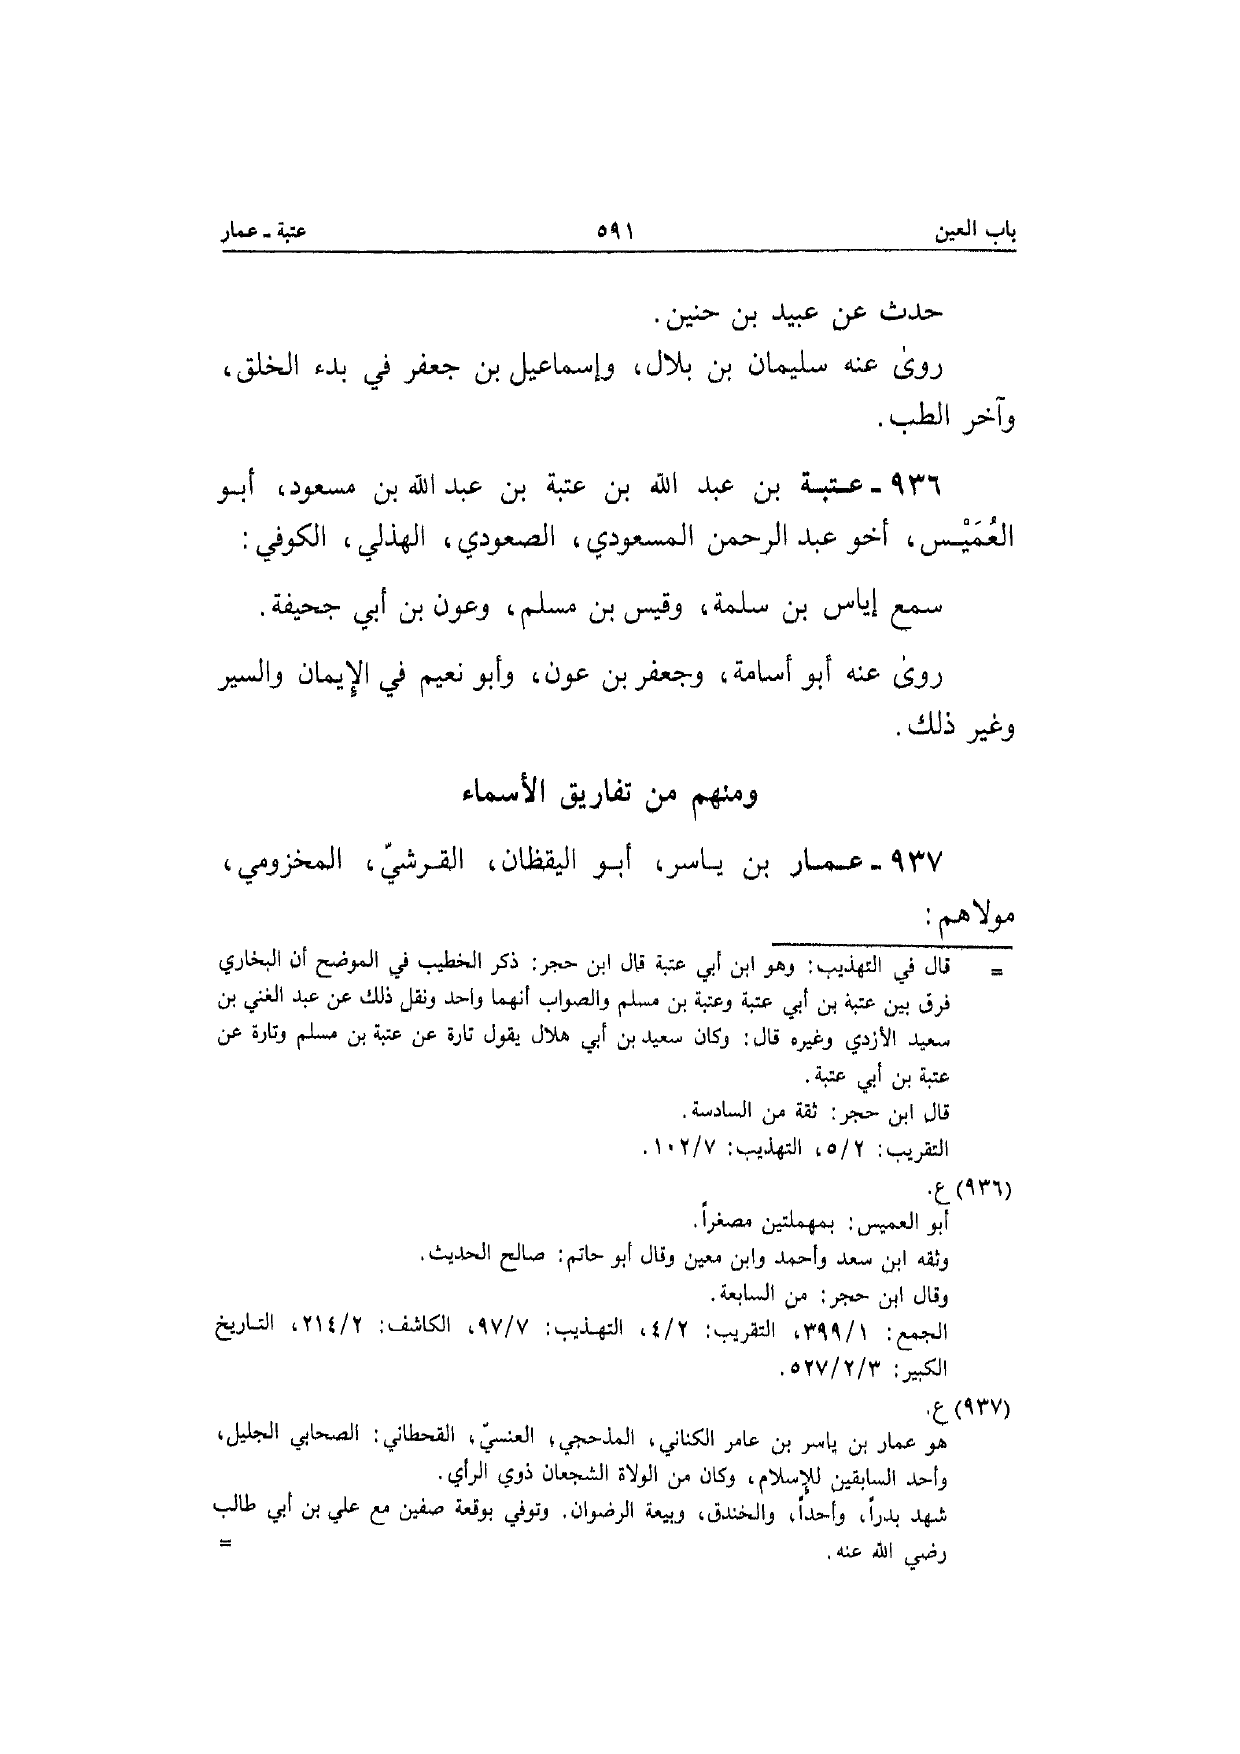 باب العين ٥٩١ عتبة ـ عمار
حدث عن عبيد بن حنين.
روىٰ عنه سليمان بن بلال، وإسماعيل بن جعفر في بدء الخلق،
وآخر الطب.
٩٣٦ ـ عـتبـة بن عبد الله بن عتبة بن عبد الله بن مسعود، أبـو
العُمَيْـس، أخو عبد الرحمن المسعودي، الصعودي، الهذلي، الكوفي:
سمع إياس بن سلمة، وقيس بن مسلم، وعون بن أبي جحيفة.
روىٰ عنه أبو أسامة، وجعفر بن عون، وأبو نعيم في الإيمان والسير
وغير ذلك.
ومنهم من تفاريق الأسماء
٩٣٧ ـ عـمـار بن يـاسر، أبـو اليقظان، القـرشيّ، المخزومي،
مولاهم:
= قال في التهذيب: وهو ابن أبي عتبة قال ابن حجر: ذكر الخطيب في الموضح أن البخاري
فرق بين عتبة بن أبي عتبة وعتبة بن مسلم والصواب أنهما واحد ونقل ذلك عن عبد الغني بن
سعيد الأزدي وغيره قال: وكان سعيد بن أبي هلال يقول تارة عن عتبة بن مسلم وتارة عن
عتبة بن أبي عتبة.
قال ابن حجر: ثقة من السادسة.
التقريب: ٥/٢، التهذيب: ١٠٢/٧.
(٩٣٦) ع.
أبو العميس: بمهملتين مصغراً.
وثقه ابن سعد وأحمد وابن معين وقال أبو حاتم: صالح الحديث.
وقال ابن حجر: من السابعة.
الجمع: ٣٩٩/١، التقريب: ٤/٢، التهـذيب: ٩٧/٧، الكاشف: ٢١٤/٢، التـاريخ
الكبير: ٥٢٧/٢/٣.
(٩٣٧) ع.
هو عمار بن ياسر بن عامر الكناني، المذحجي، العنسيّ، القحطاني: الصحابي الجليل،
وأحد السابقين للإسلام، وكان من الولاة الشجعان ذوي الرأي.
شهد بدراً، وأحداً، والخندق، وبيعة الرضوان. وتوفي بوقعة صفين مع علي بن أبي طالب
رضي الله عنه. =